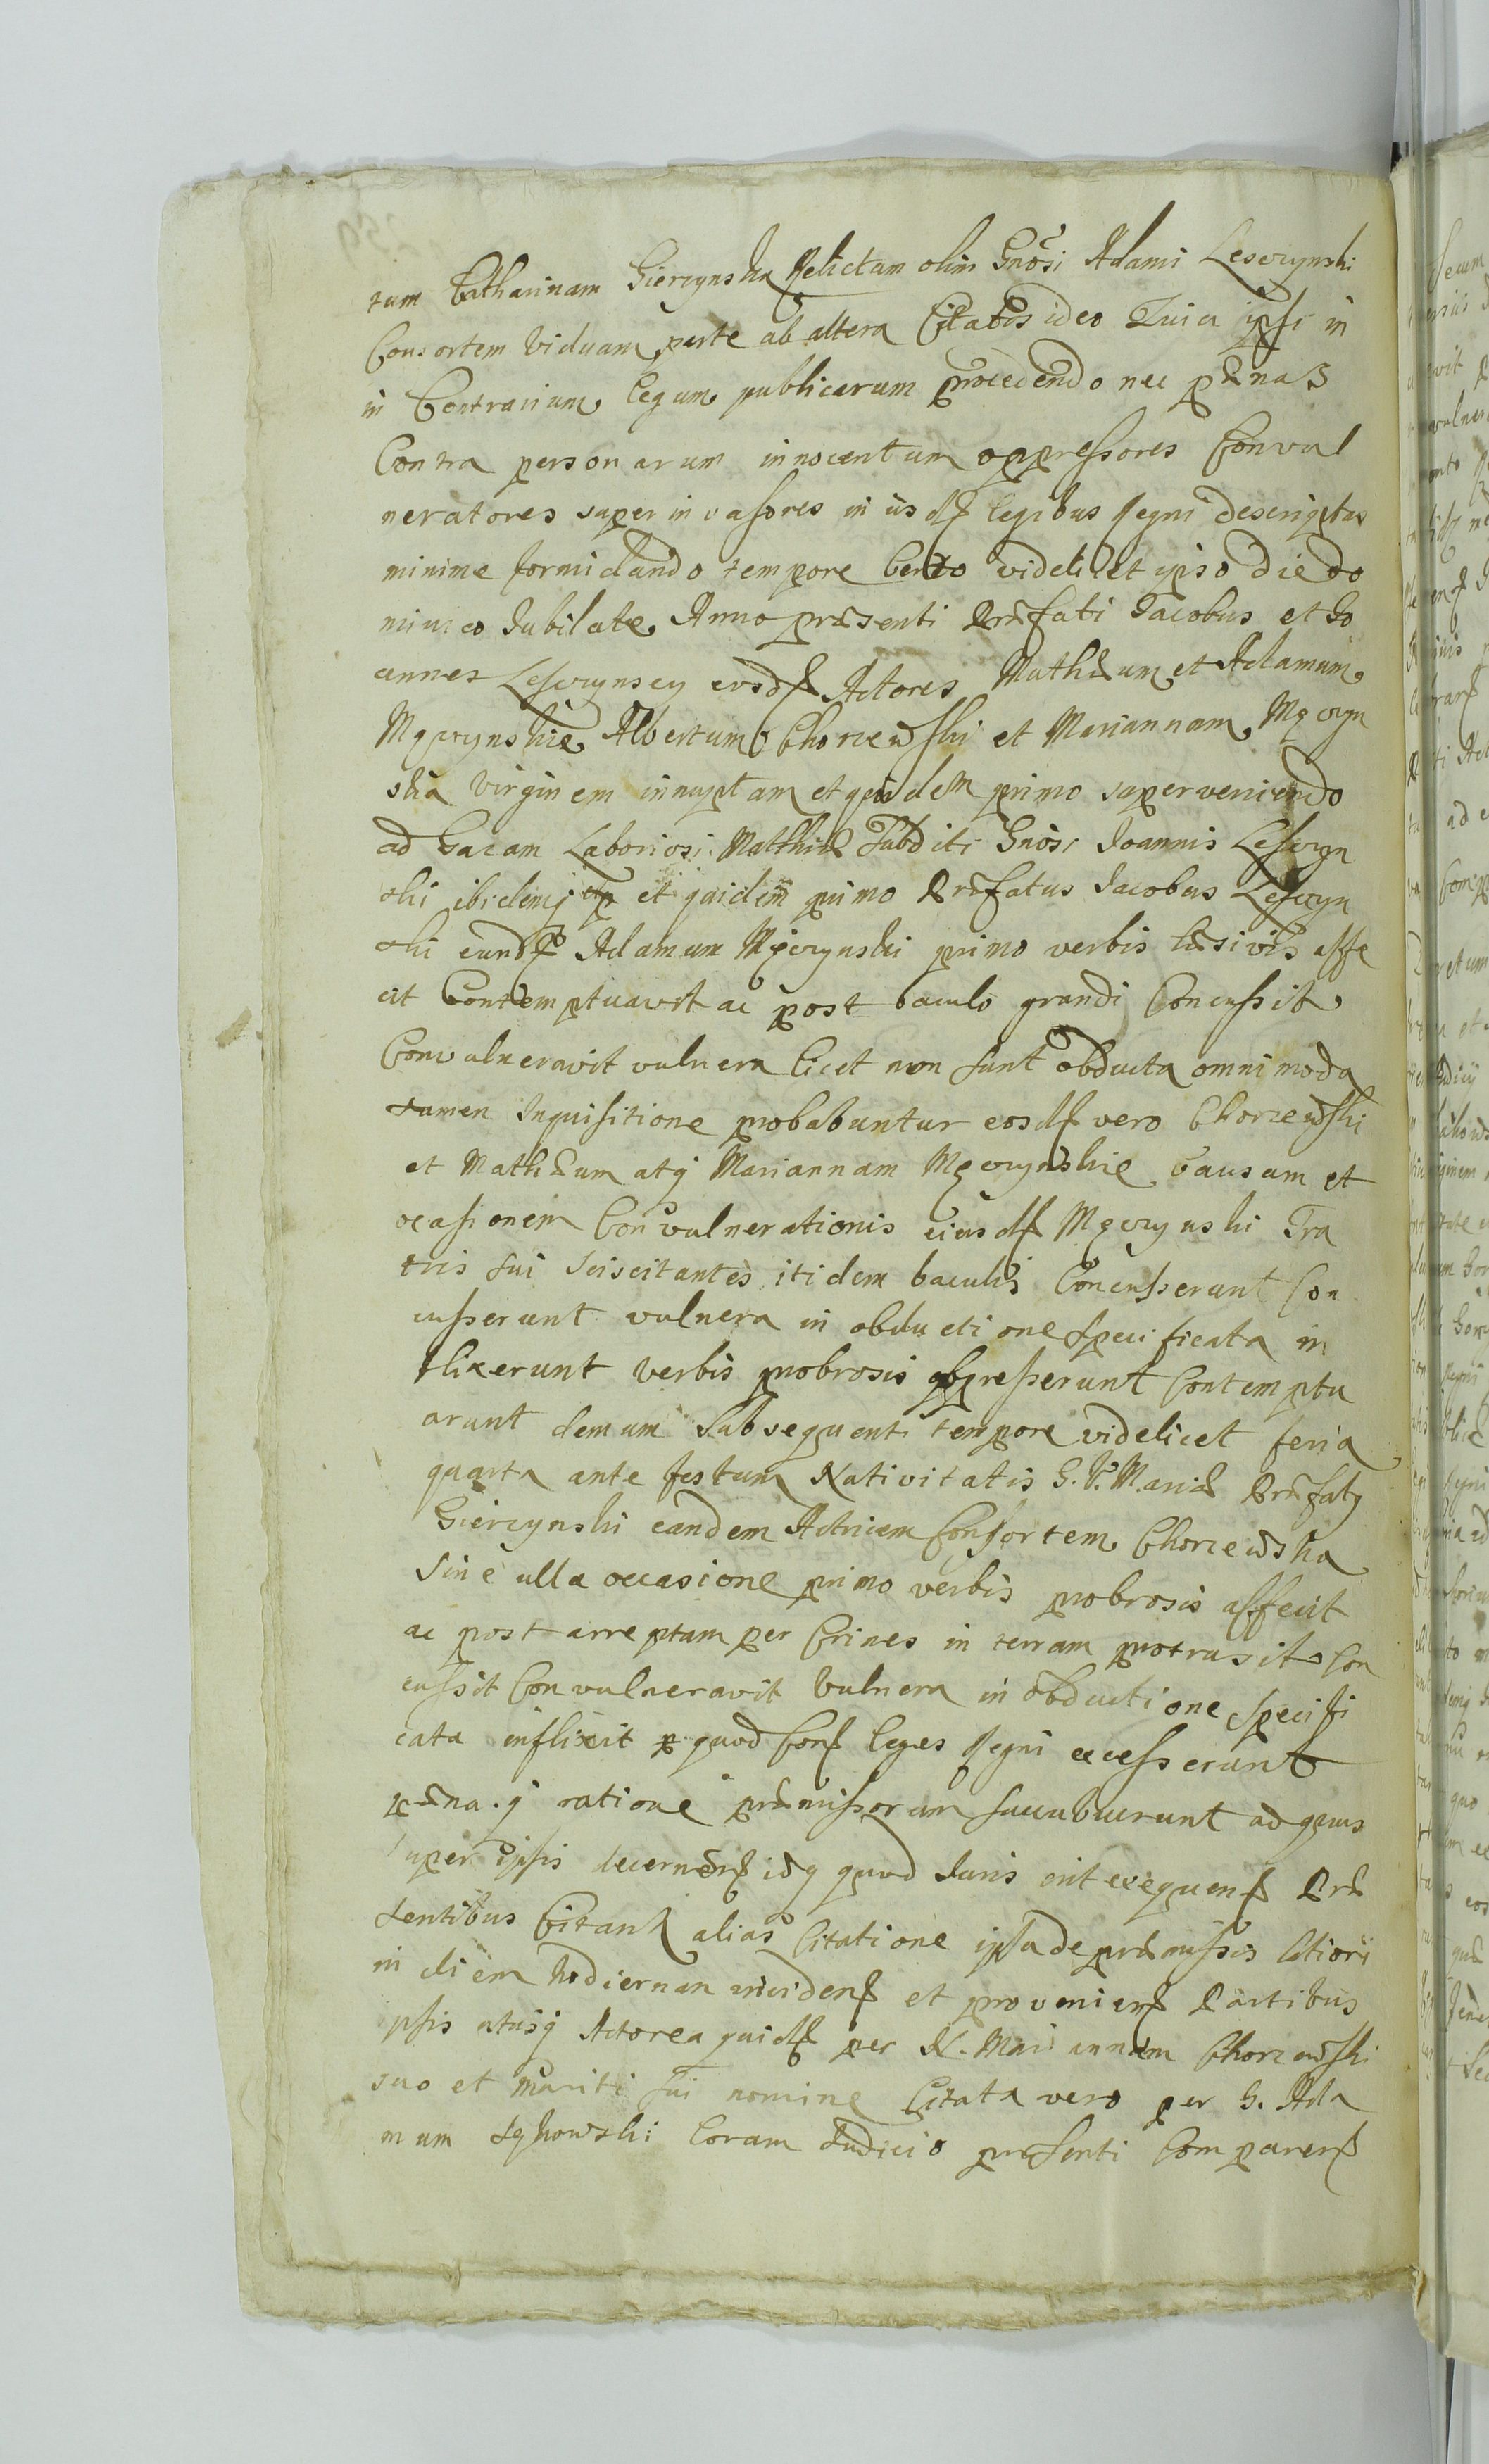 tam Catharinam Gierzynska Relictam olim Gnosi Adami Leszczynski
Consortem Viduam parte ab altera Citatos ideo Quia ipsi in
in Contrarium legum publicarum procedendo nec pænas
Contra personarum innocentum oppressores Conval
neratores super invasores in iisdf legibus Regni descriptas
minime formidando tempore Certo videlicet ipso die do
minico Jubilate Anno præsenti Præfati Jacobus et Jo
annes Leszczynscy eosdf Actores Mathæum et Adamum
Męczynskie Albertum Chorzewski et Mariannam Męczyn
ska Virginem innuptam et quidem primo superveniendo
ad Gazam Laboriosi Matthiæ Subditi Gnosi Joannis Leszczyn
ski ibidemq et quidem primo Præfatus Jacobus Leszczyn
ski eundf Adamum Męczynski primo verbis læsivis affe
cit Contemptuavit ac post baculo grandi Concussit
Convulneravit vulnera licet non sunt obducta omnimoda
tamen Inquisitione probabuntur eosdf vero Chorzewski
et Mathæum atq Mariannam Męczynskie Causam et
ocasionem Convulnerationis eiusdf Męczynski Fra
tris sui sciscitantes itidem baculis Concusserunt Con
cusserunt vulnera in obductione specificata in
flixerunt verbis probrosis oppresserunt Contemptu
arunt demum Subsequenti tempore videlicet feria
quarta ante festum Nativitatis S. V. Mariæ Præfatq
Gierzynski eandem Actricem Consortem Chorzewska
Sine ulla occasione primo verbis probrosis affecit
ac post arreptam per Crines in terram protrusit Con
cussit Convulneravit Vulnera in obductione specifi
cata inflixit p quod Conf leges Regni excesserunt
pænaq ratione præmissorum succubuerunt ad quas
super ipsis decernenf idq quod Juris erit exequenf Præ
sentibus Citant alias Citatione ipsa de præmissis latiori
in diem hodiernam incidenf et provenienf Partibus
ipsis utrisq Actorea quidf per N. Mariannam Chorzewski
suo et mariti sui nomine Citata vero per G. Ada
mum Łękowski Coram Judicio præsenti Comparenf